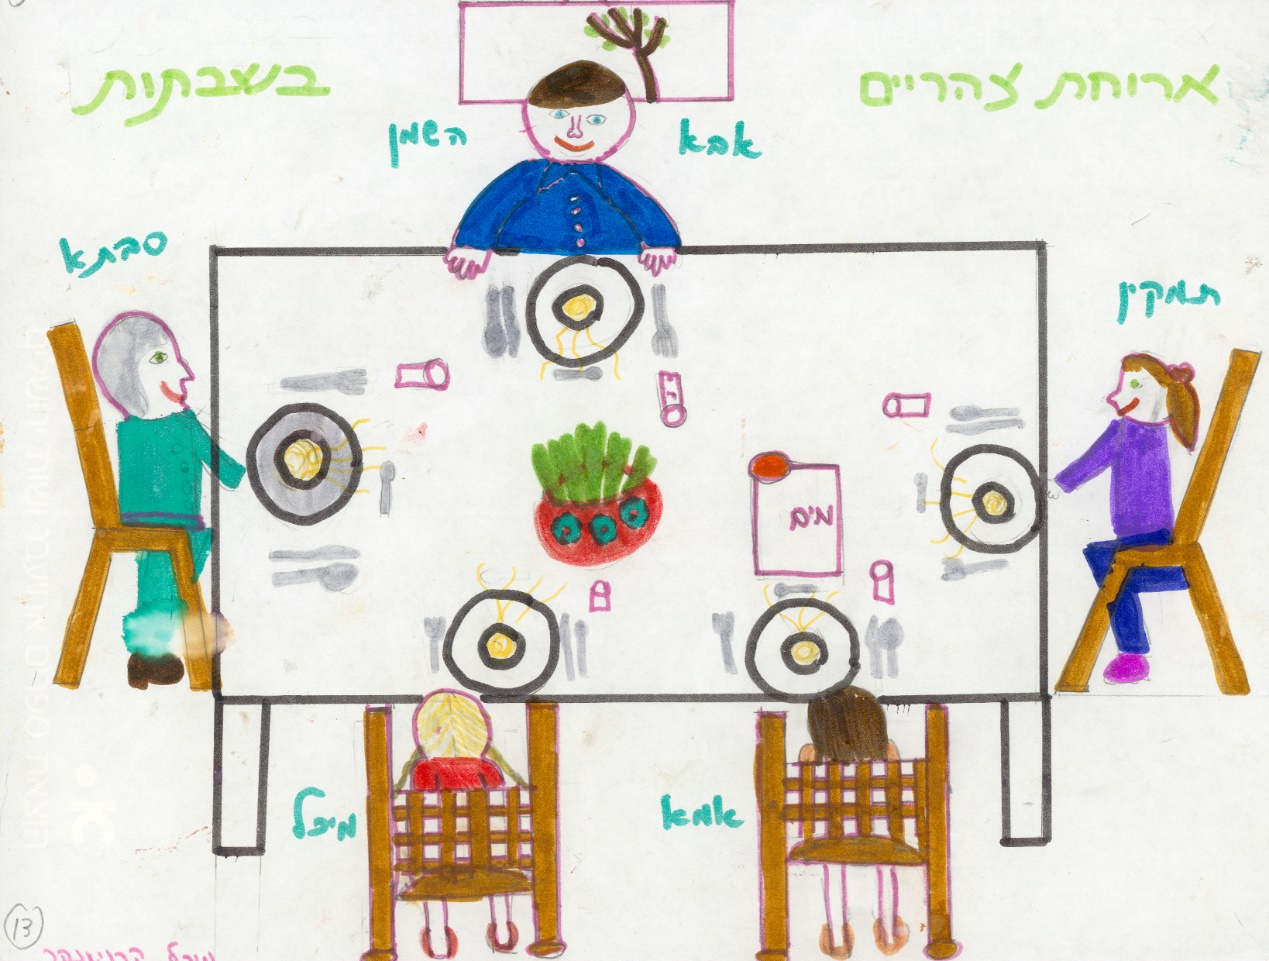 ארוחת צהריים בשבתות
אבא השמן
סבתא
תמקין
מים
מיכל
אמא
13